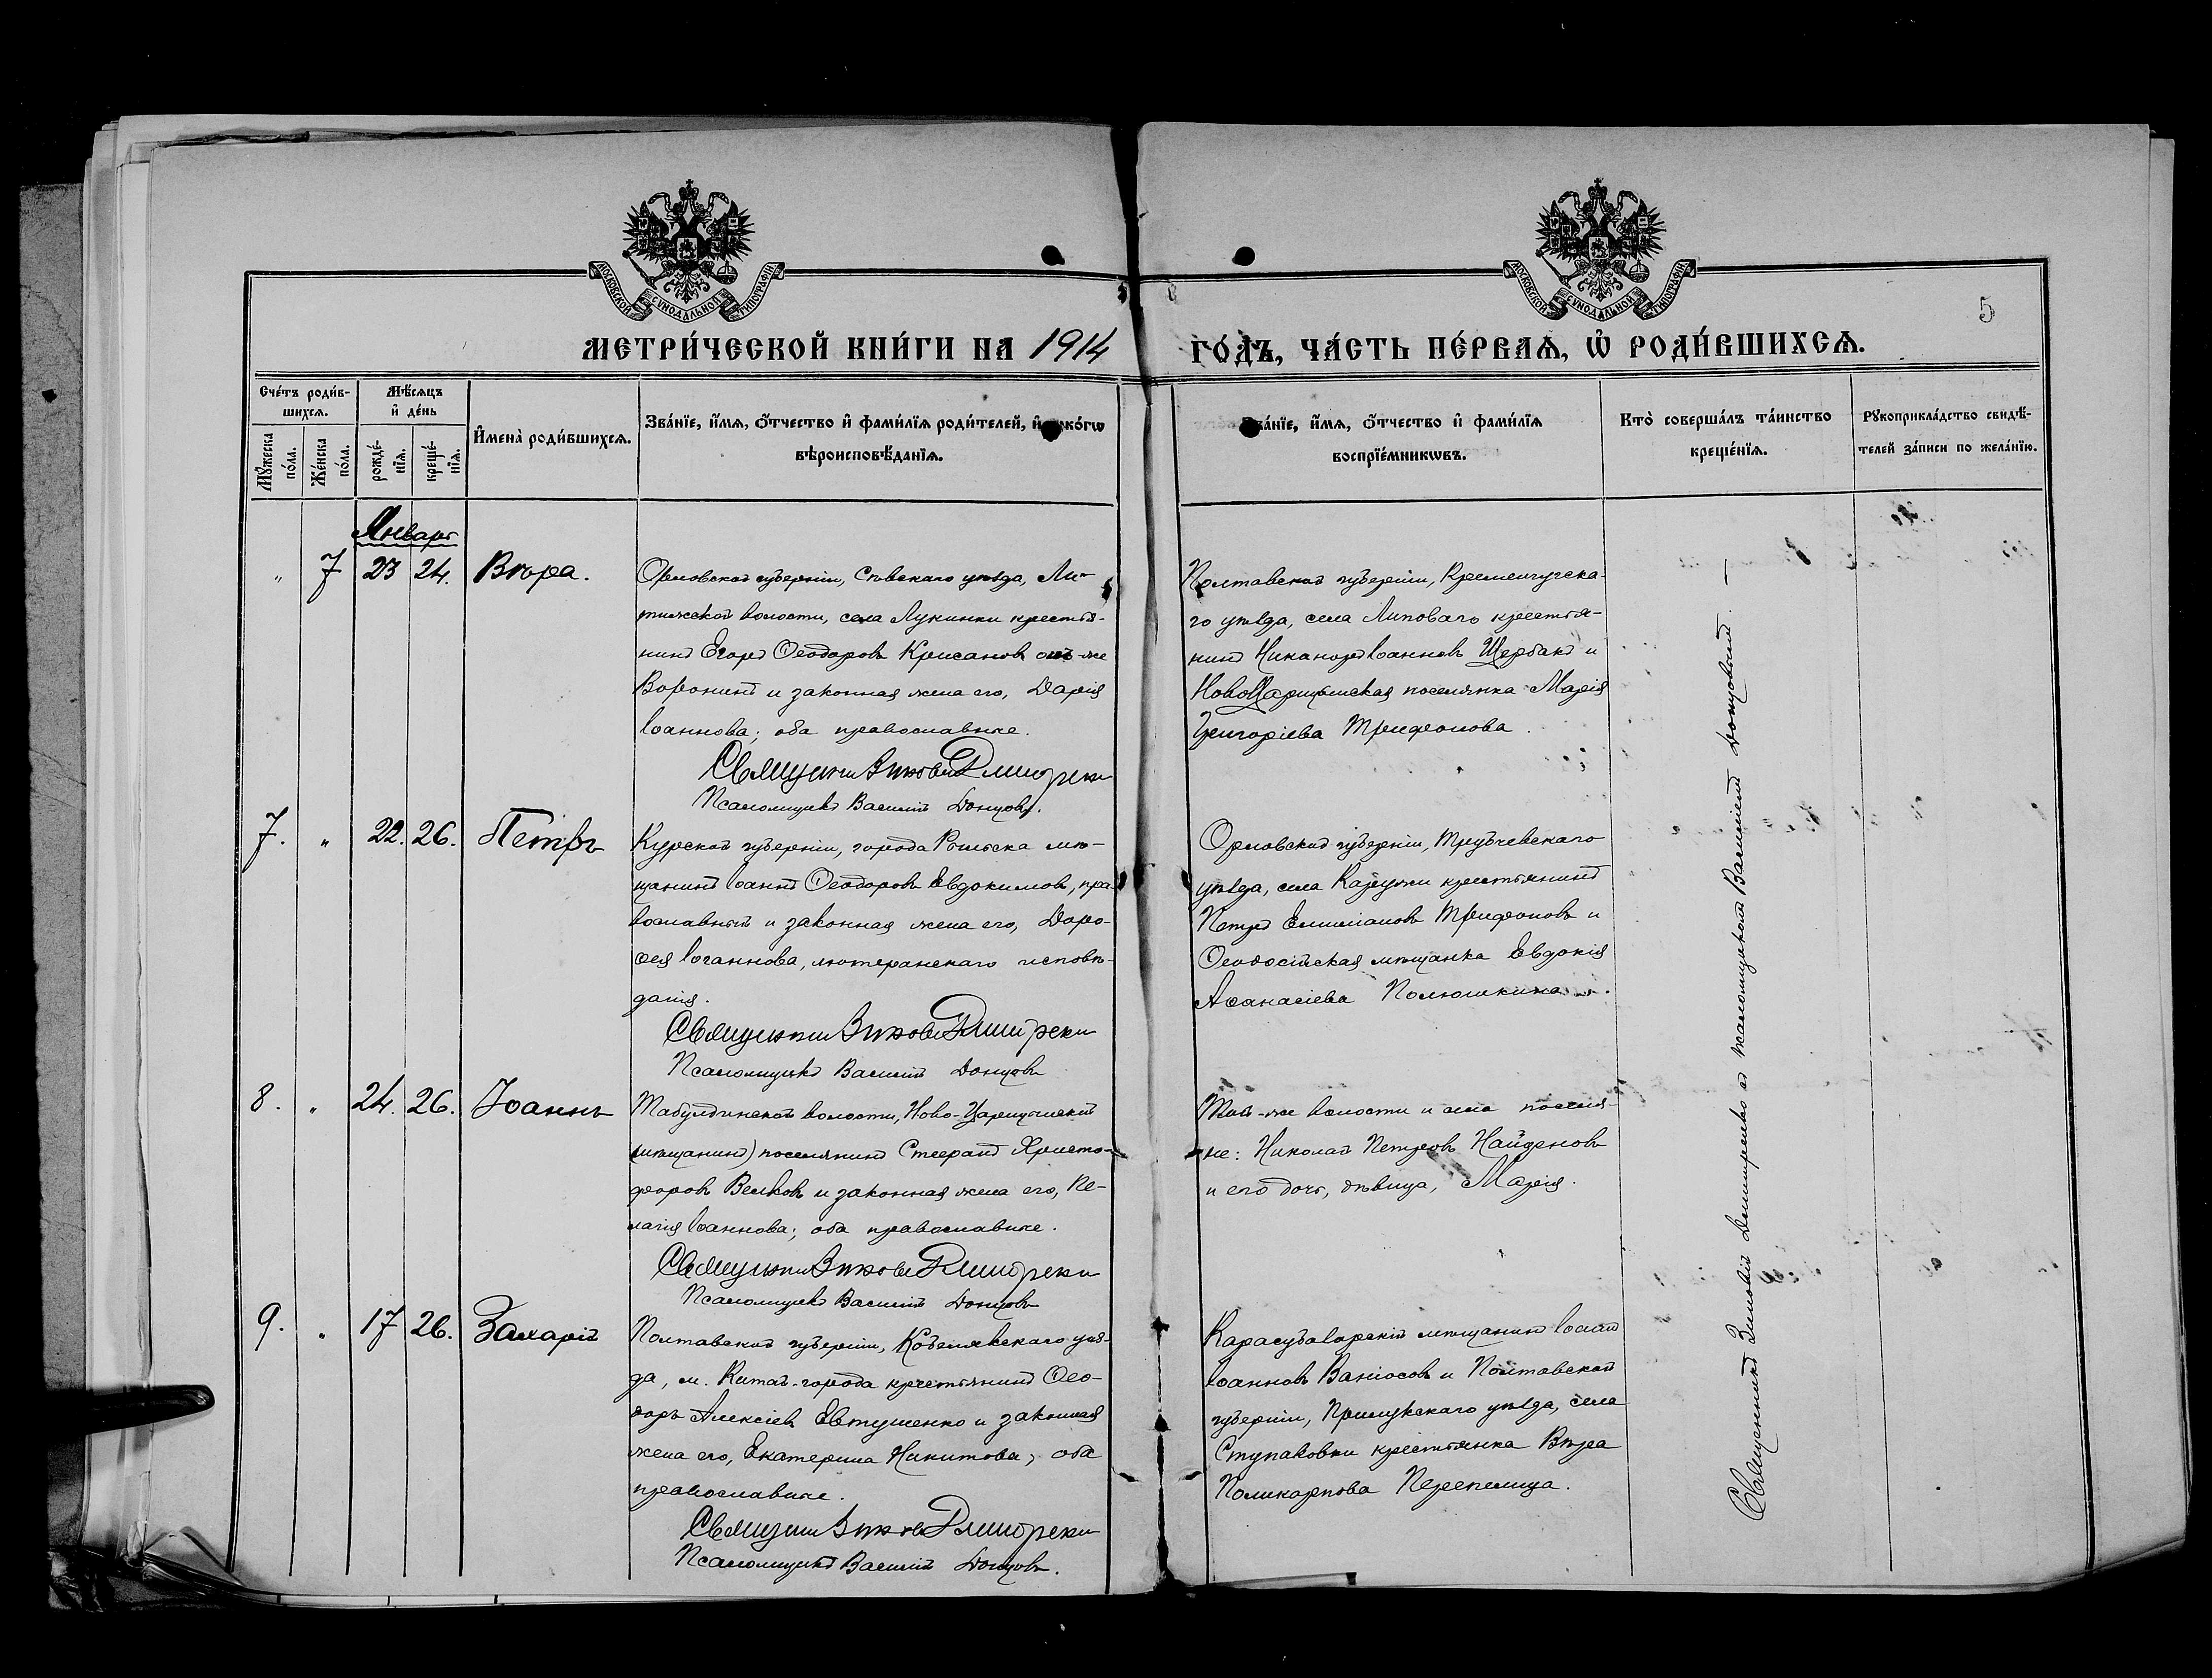 МОСКОВСКОЙ СѴНОДАЛЬНОЙ ТИПОГРАФІИ
МОСКОВСКОЙ СѴНОДАЛЬНОЙ ТИПОГРАФІИ
5
МЕТРИ́ЧЕСКОЙ КНИ́ГИ НА 1914 ГО́ДЪ, ЧА́СТЬ ПЕ́РВАѦ, Ѡ҆ РОДИ́ВШИХСѦ.
Сче́тъ роди́в-
шихсѧ.
Мѣ́сѧцъ
и҆ де́нь
Мꙋ́жеска
по́ла.
Же́нска
по́ла.
рожде́-
нїѧ.
креще́-
нїѧ.
И҆мена̀ роди́вшихсѧ.
Зва́нїе, и҆́мѧ, ѻ҆́тчество и҆ фами́лїѧ роди́телей, и҆ како́гѡ
вѣроисповѣ́данїѧ.
Зва́нїе, и҆́мѧ, ѻ҆́тчество и҆ фами́лїѧ
воспрїе́мникѡвъ.
Кто̀ соверша́лъ та́инство
креще́нїѧ.
Рꙋкоприкла́дство свидѣ́-
телей за́писи по жела́нїю.
Январь
" 7 23 24. Вѣра.
Орловской губерніи, Сѣвскаго уѣзда, Ли-
тижской волости, села Лукинки крестья-
нинъ Егоръ Ѳеодоровъ Крисановъ онъ-же
Воронинъ и законная жена его, Дарія
Іоаннова; оба православные.
Священникъ Зиновій Дмитренко
Псаломщикъ Василій Донцовъ.
Полтавской губерніи, Кременчугска-
го уѣзда, села Липоваго крестья-
нинъ Никаноръ Іоанновъ Щербакъ и
НовоЦарицынская поселянка Марія
Григоріева Трифонова.
7. " 22. 26. Петръ
Курской губерніи, города Рыльска мѣ-
щанинъ Іоаннъ Ѳеодоровъ Евдокимовъ, пра-
вославный и законная жена его, Доро-
ѳея Іоганнова, лютеранскаго исповѣ-
данія.
Священникъ Зиновій Дмитренко
Псаломщикъ Василій Донцовъ
Орловской губерніи, Трубчевскаго
уѣзда, села Кариужи крестьянинъ
Петръ Емиліановъ Трифоновъ и
Ѳеодосійская мѣщанка Евдокія
Аѳанасіева Полюшкина.
8. " 24. 26. Іоаннъ
Табулдинской волости, Ново-Царицынскій
(мѣщанинъ) поселянинъ Стефанъ Христо-
форовъ Велковъ и законная жена его, Пе-
лагія Іоаннова; оба православные.
Священникъ Зиновій Дмитренко
Псаломщикъ Василій Донцовъ
Той-же волости и села поселя-
не: Николай Петровъ Найденовъ
и его дочь, дѣвица, Марія.
9. " 17 26. Захарій
Полтавской губерніи, Кобелякскаго уѣз-
да, м. Китай-города крестьянинъ Ѳео-
доръ Алексіевъ Евтушенко и законная
жена его, Екатерина Никитова; оба
православные.
Священникъ Зиновій Дмитренко
Псаломщикъ Василій Донцовъ.
Карасубазарскій мѣщанинъ Іоаннъ
Іоанновъ Ваніосовъ и Полтавской
губерніи, Прилукскаго уѣзда, села
Ступаковки крестьянка Вѣра
Поликарпова Перепелица.
Священникъ Зиновій Дмитренко съ псаломщикомъ Василіемъ Донцовымъ. —